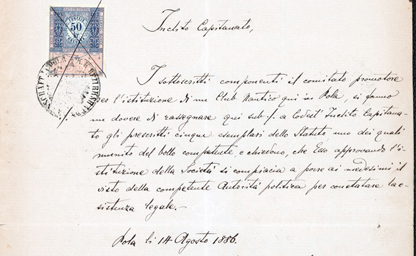 50
Inclito Capitanato,
I sottoscritti componenti il comitato promotore
per l'istituzione di un Club Nautico qui in Pola, si fanno
un dovere di rassegnare qui sub /. a Codest' Inclito Capitana-
to gli prescritti cinque esemplari dello Statuto uno dei quali
munito del bollo competente e chiedono, che Esso approvando l'i-
stituzione della Società si compiaccia a porre ai medesimi il
visto della competente Autorità politica per constatare l'e-
sistenza legale.
Pola li 14 Agosto 1886.